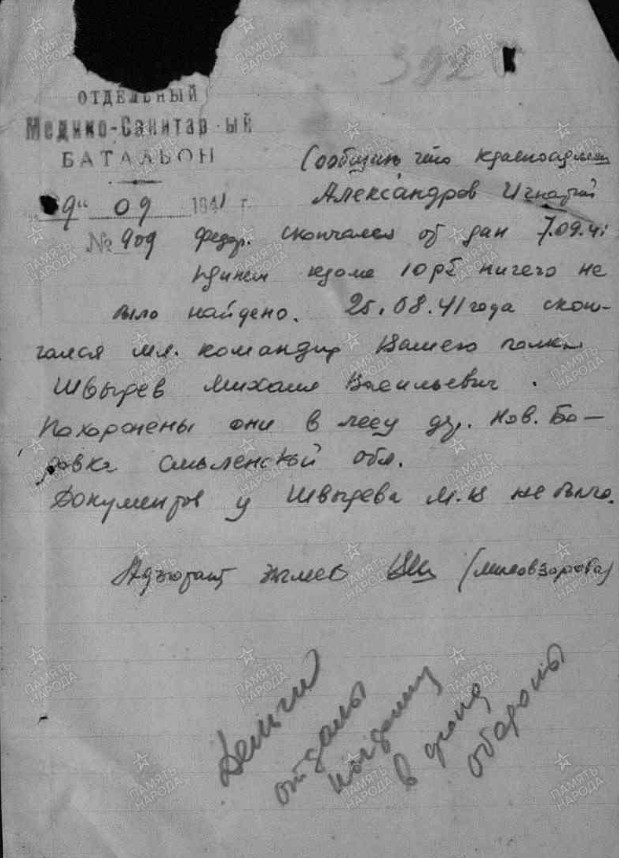 392
ОТДЕЛЬНЫЙ
Медико-Санитар ый
БАТАЛЬОН
Сообщаю что красноармеец
"9" 09 1941 г
Александров Игнатий
№ 909 федор. скончался от ран 7.09.41
кроме 10 рб ничего не
было найдено. 25.08.41 года скон-
чался мл. командир Вашего полка
Швырев Михаил Васильевич.
Похоронены они в лесу д. Нов. Бо-
ровка Смоленской обл.
Документов у Швырева М.В не было.
Адъютант
Деньги
отданы
в фонд
обороны
ПАМЯТЬ
НАРОДА